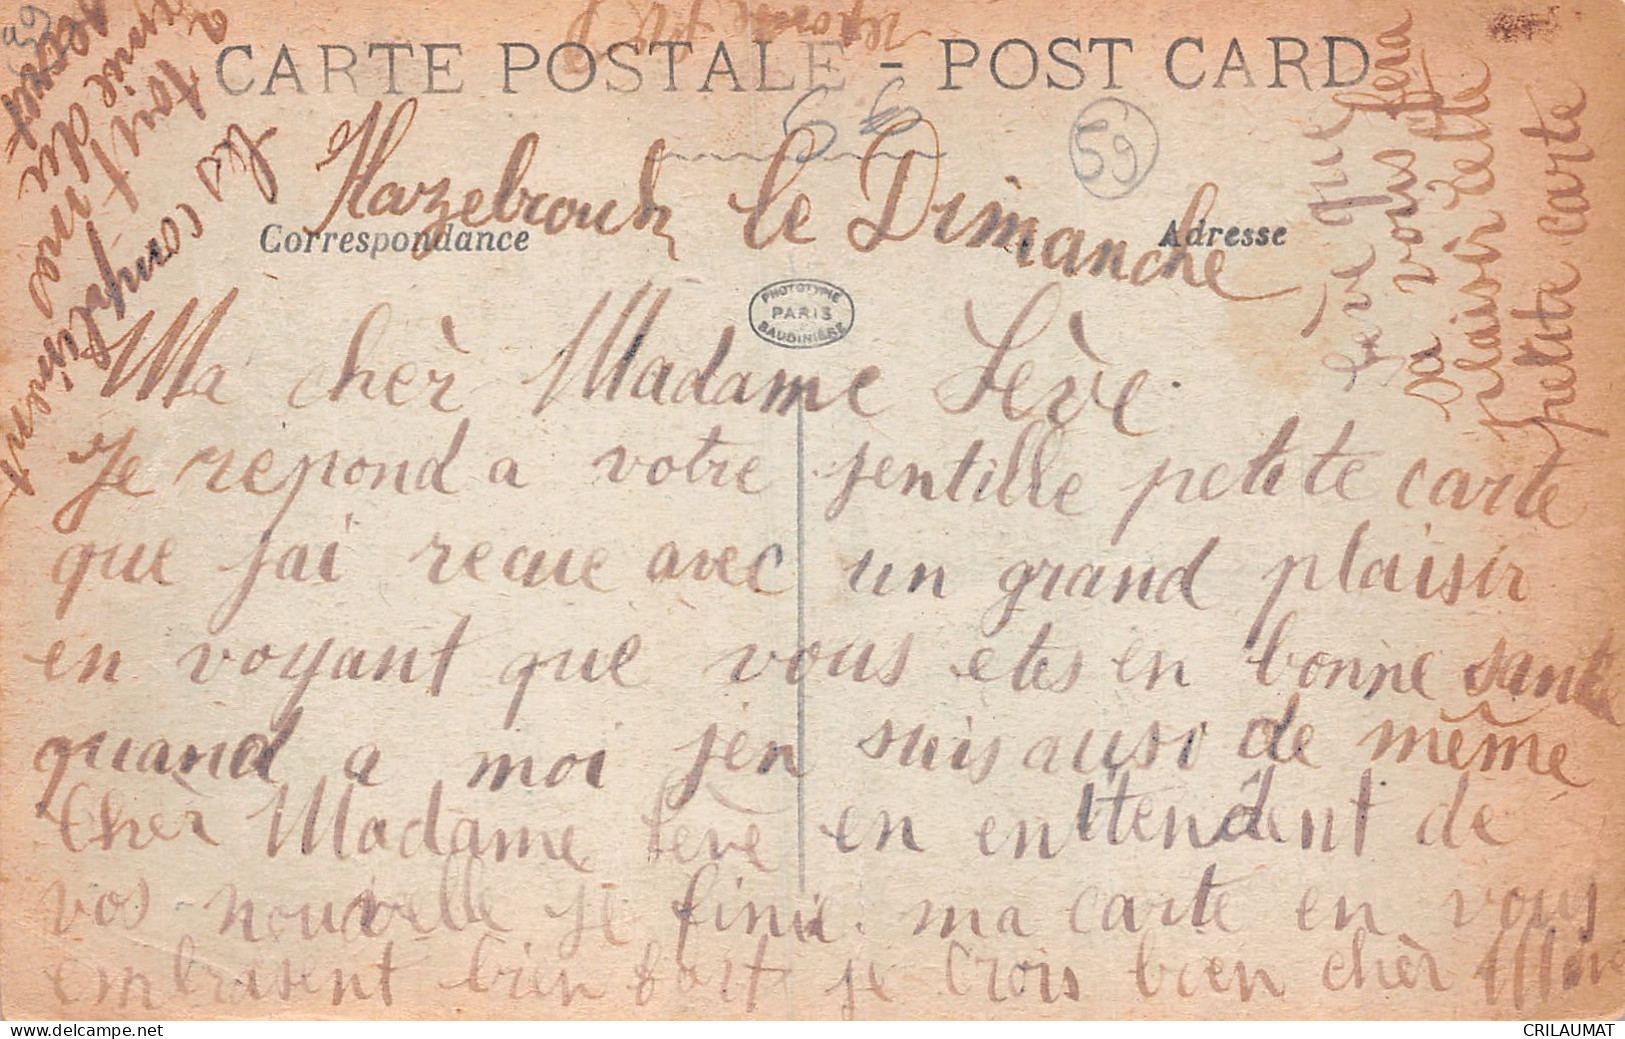 CARTE POSTALE - POST CARD
59
Hazebrouck le Dimanche
Correspondance
Adresse
PHOTOTYPIE
PARIS
BAUDINIÈRE
Ma chèr Madame Lève
Je repond a votre jentille petite carte
que j'ai recue avec un grand plaisir
en voyant que vous etes en bonne santé
quand a moi j'en suis aussi de même
Chèr Madame Leve en enttendent de
vos nouvelle je finie ma carte en vous
embrasent bien fort je crois bien chèr Mme
Leve que
sa vous fera
plaisir cette
petite carte
les compliment
a tout mes
amie du
reponse
CRILAUMAT